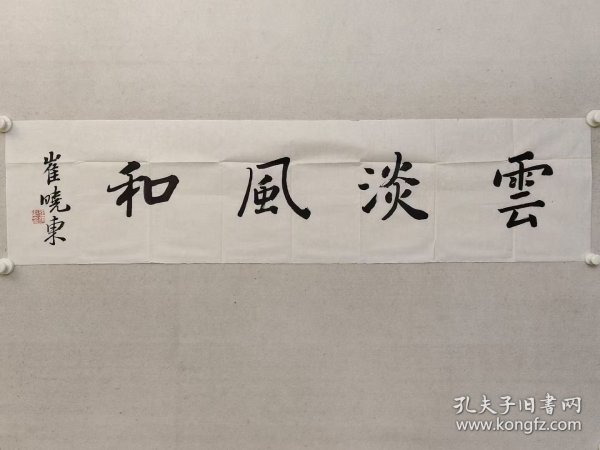 雲淡風和
崔曉東
孔夫子旧書网
www.kongfz.com